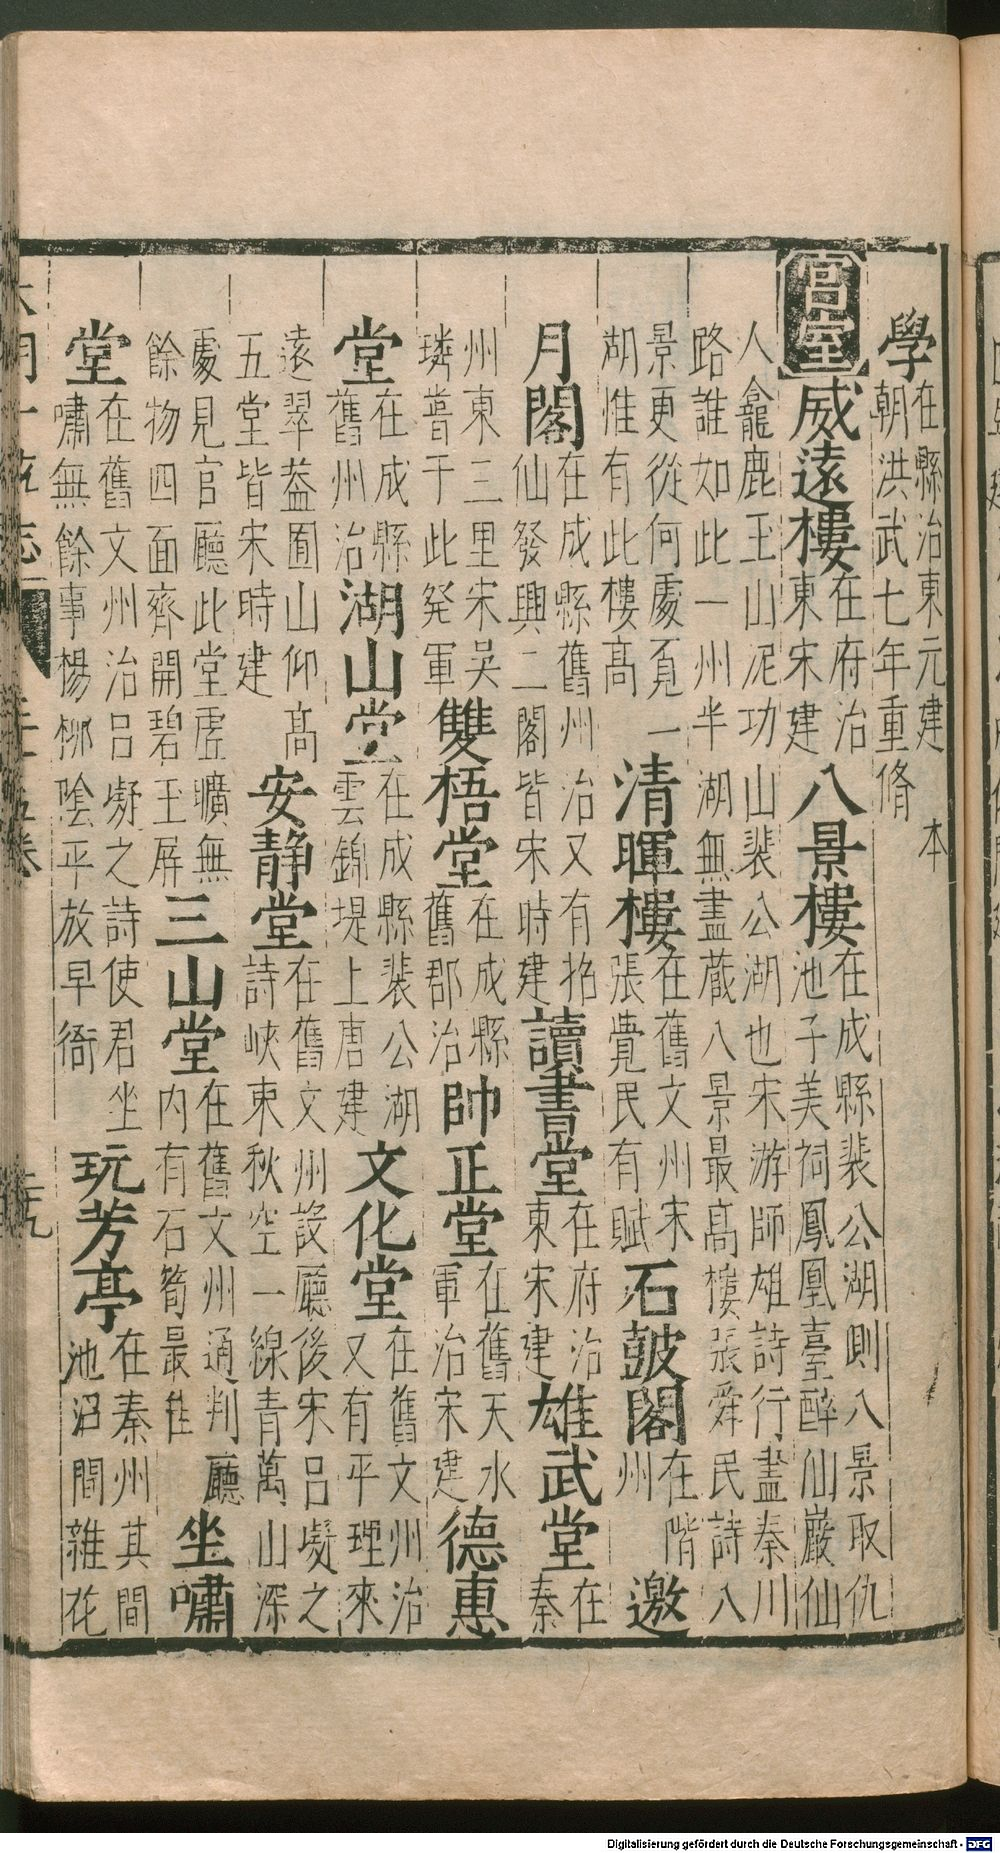 學在縣治東元建本
朝洪武七年重脩
宮室威遠樓在府治東宋建八景樓在成縣裴公湖則八景取仇
池子美祠鳳凰臺醉仙巖仙
人龕鹿玉山泥功山裴公湖也宋游師雄詩行盡秦川
路誰如此一州半湖無盡蕆八景最高樓張舜民詩八
景更從何處覓一
湖惟有此樓高清暉樓在舊文州宋
張覺民有賦石皷閣在階
州邀
月閣在成縣舊州治又有招
仙發興二閣皆宋時建讀書堂在府治
東宋建雄武堂在
秦
州東三里宋吳
璘嘗于此発軍雙梧堂在成縣
舊郡治帥正堂在舊天水
軍治宋建德惠
堂在成縣
舊州治湖山堂在成縣裴公湖
雲錦堤上唐建文化堂在舊文州治
又有平理來
遠翠益囿山仰高
五堂皆宋時建安靜堂在舊文州設廳後宋呂㒟之
詩峽東秋空一線青萬山深
處見官廳此堂虛曠無
餘物四面齊開碧玉屏三山堂在舊文州通判廳
內有石筍最佳坐嘯
堂在舊文州治呂㒟之詩使君坐
嘯無餘事楊栁陰平放早衙玩芳亭在秦州其間
池沼間雜花
Digitalisierung gefördert durch die Deutsche Forschungsgemeinschaft - DFG